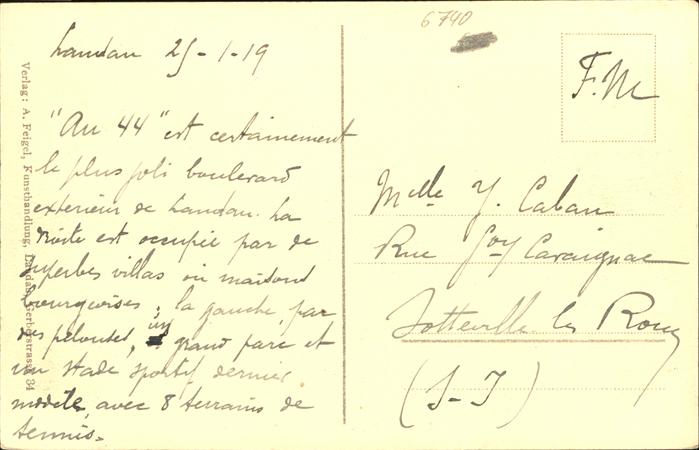 6740
Landau 25-1-19
F.M
"Au 44" est certainement
le plus joli boulevard
extérieur de Landau. La
droite est occupée par de
superbes villas ou maisons
bourgeoises; la gauche, par
des pelouses, un grand parc et
un stade sportif dernier
modèle, avec 8 terrains de
tennis.
Melle Y. Caban
Rue Gov Cavaignac
Sotteville les Rouen
(S-I)
Verlag: A. Feigel, Kunsthandlung, Landau, Gerberstrasse 34